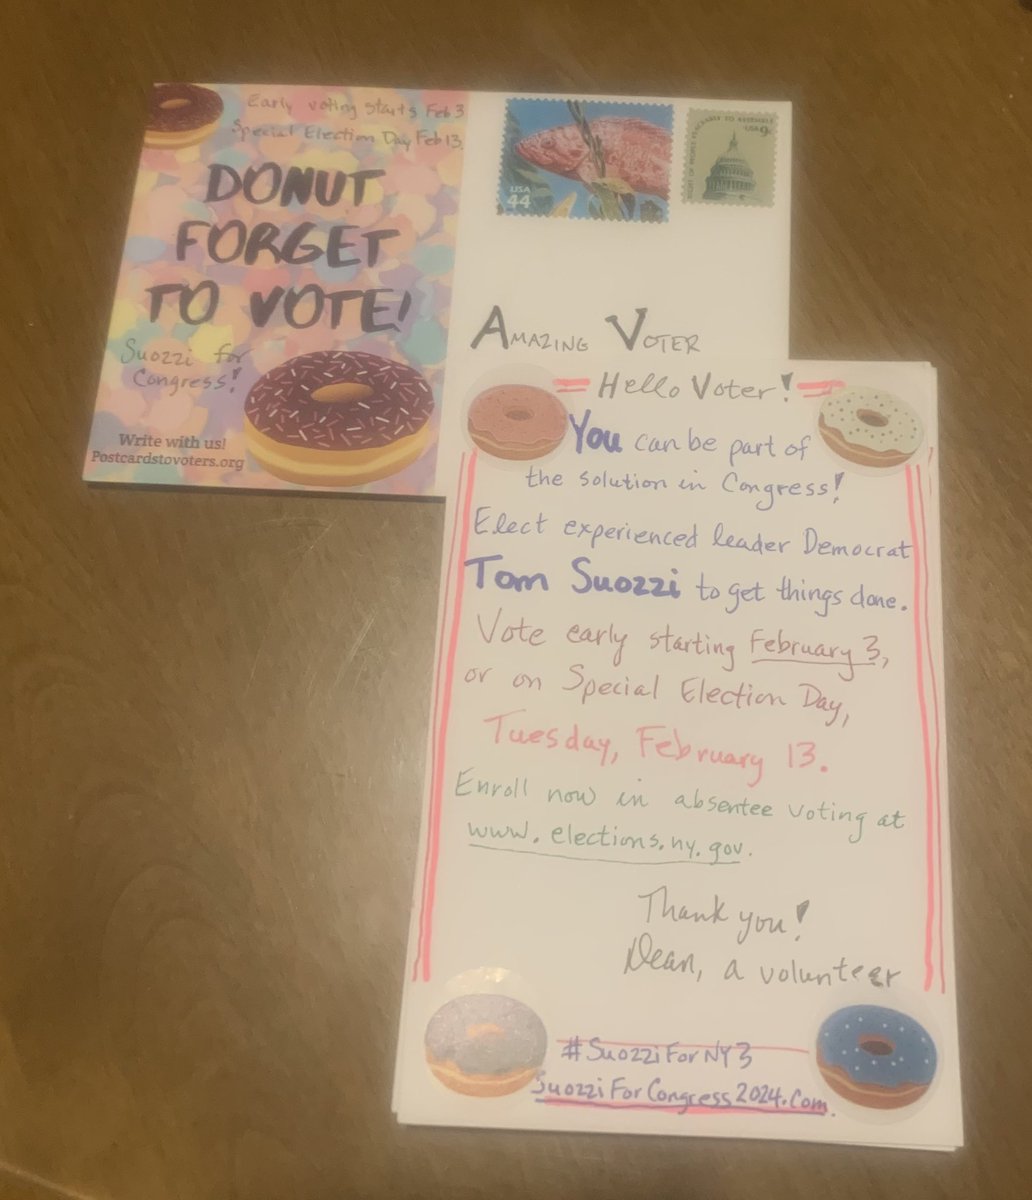 Early voting starts Feb 3
Special Election Day Feb 13.
DONUT
FORGET
TO VOTE!
Suozzi for
Congress!
Write with us!
Postcardstovoters.org
USA
44
PEACEABLY TO ASSEMBLE
OF PEOPLE
USA 9c
AMAZING VOTER
Hello Voter!
You can be part of
the solution in Congress!
Elect experienced leader Democrat
Tom Suozzi to get things done.
Vote early starting February 3,
or on Special Election Day,
Tuesday, February 13.
Enroll now in absentee voting at
www.elections.ny.gov.
Thank you!
Dean, a volunteer
#SuozziForNY3
SuozziForCongress2024.com.